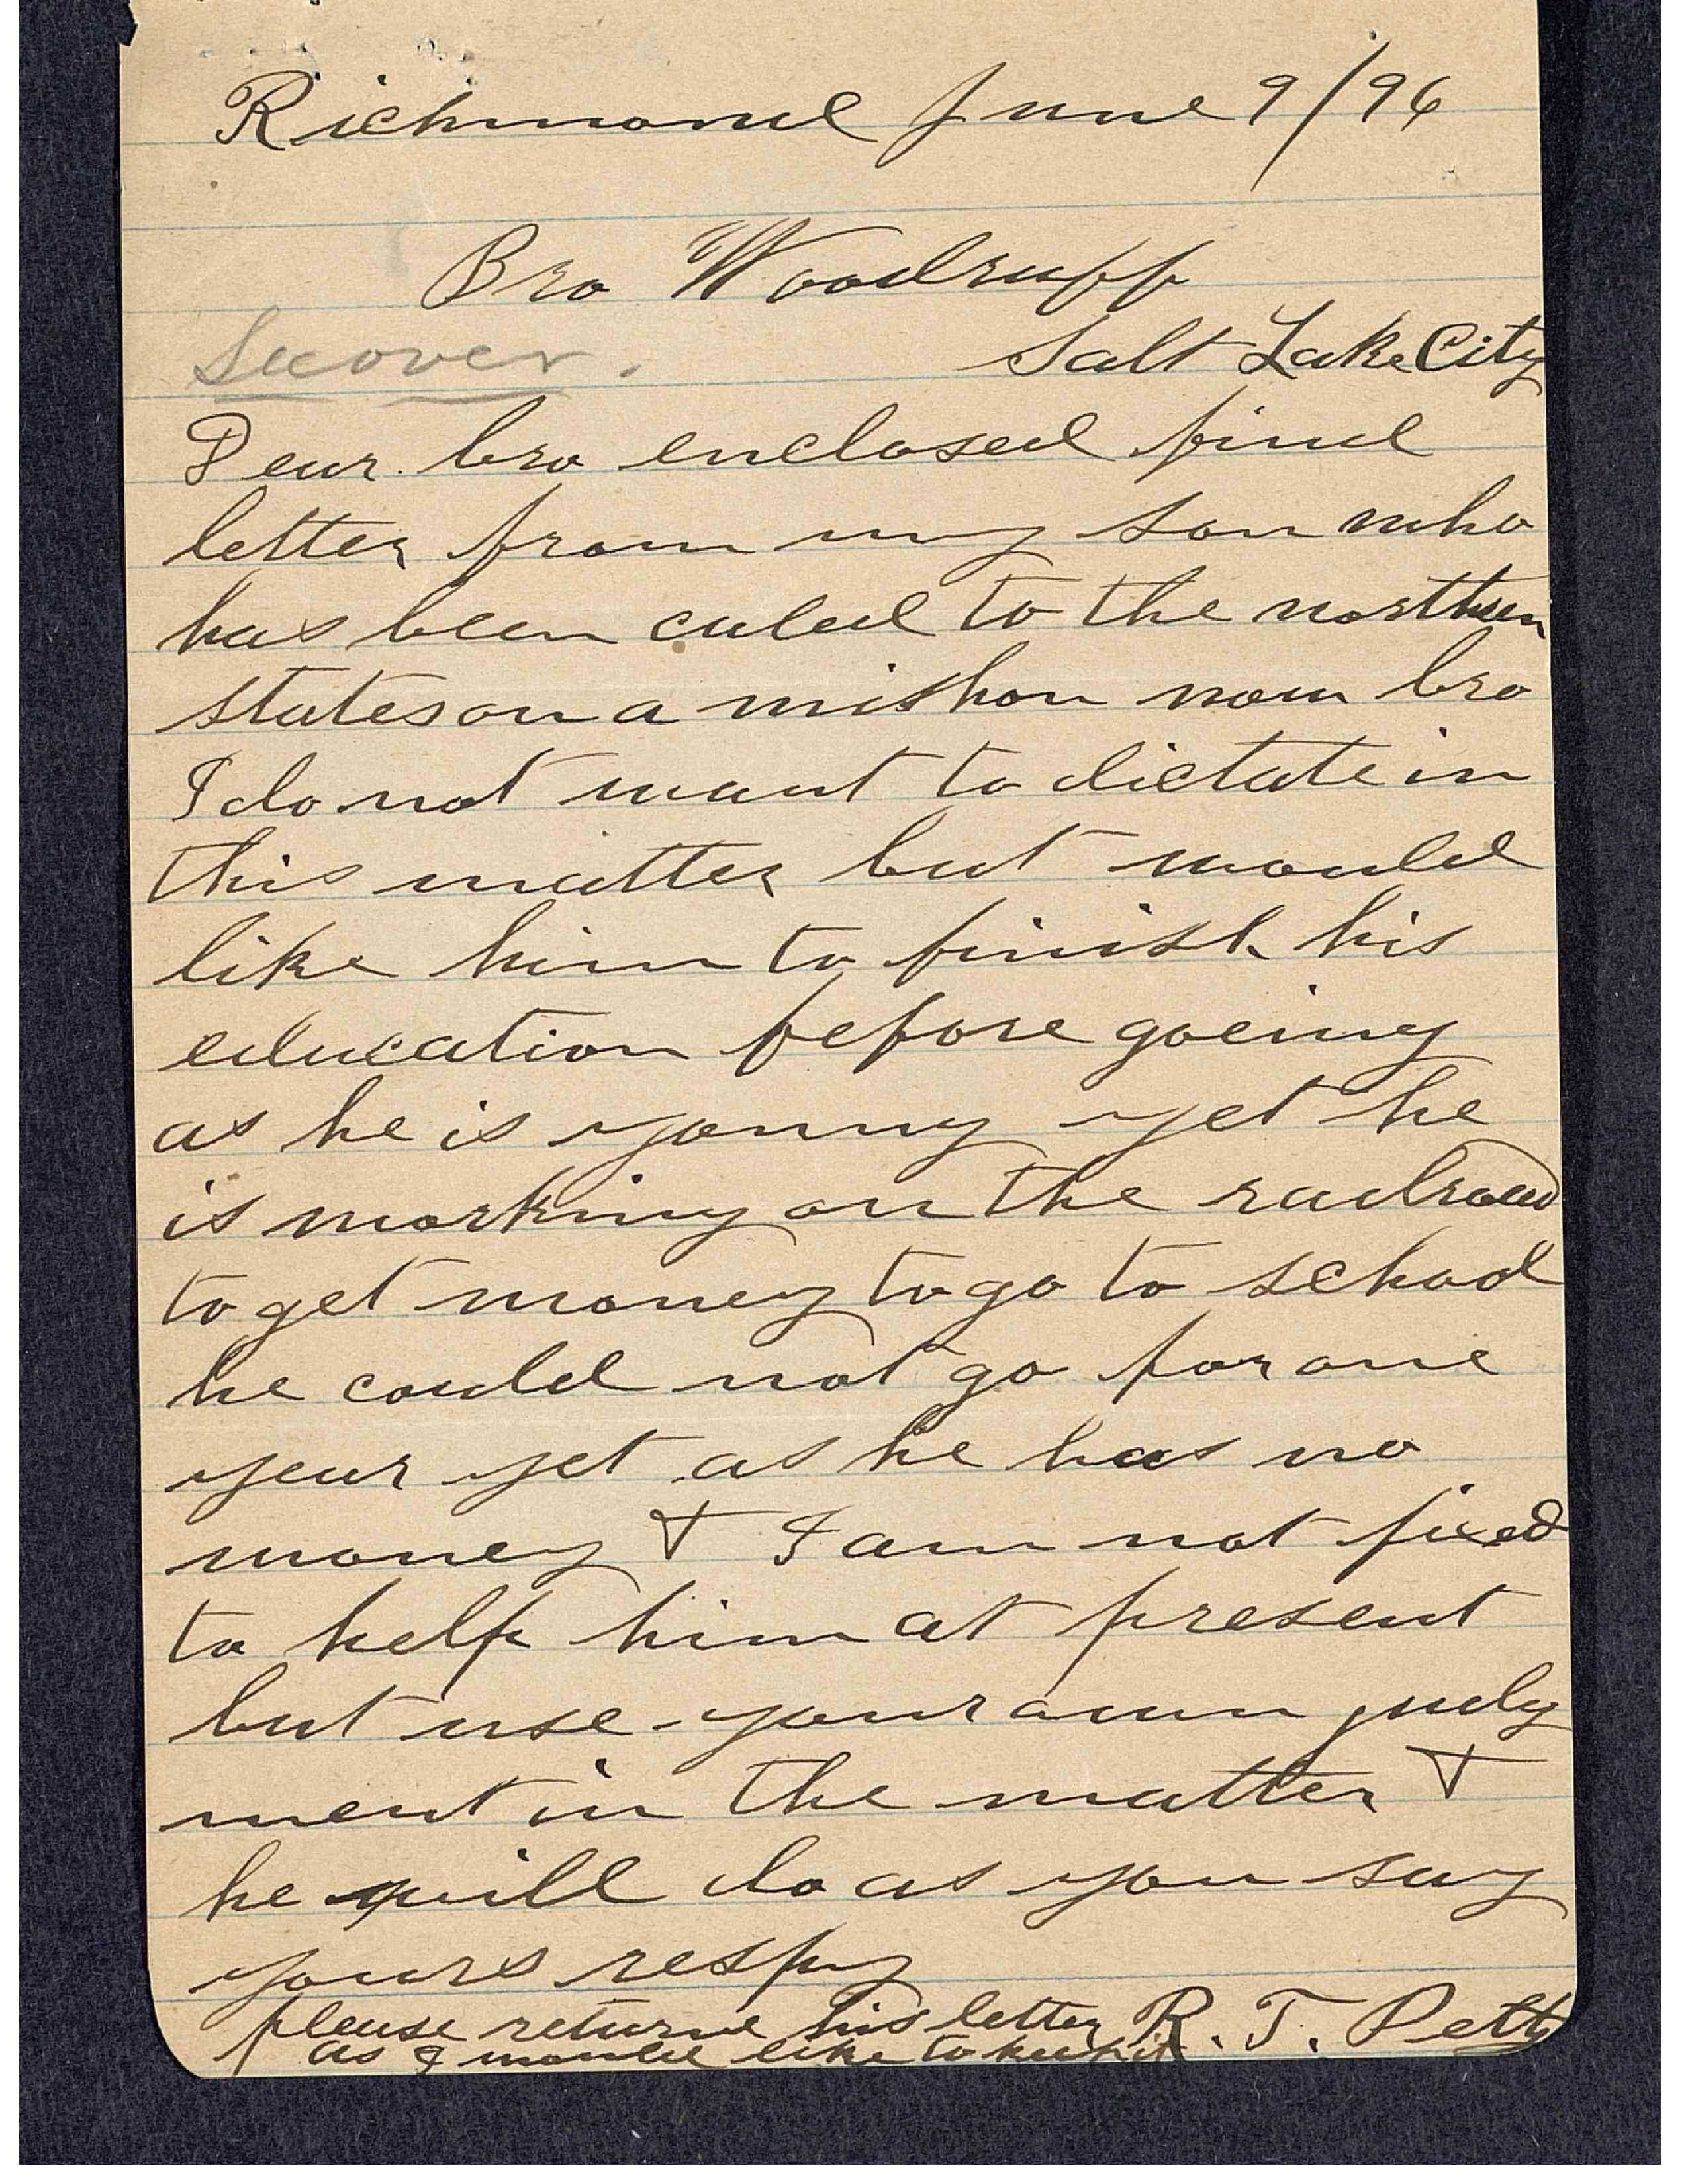 Richmond June 9/96
Bro Woodruff
See over.
Salt Lake City
Dear bro enclosed find
letter from my son who
has been caled to the northern
states on a mishon now bro
I do not want to dictate in
this matter but would
like him to finish his
education before goeing
as he is young yet he
is working on the railroad
to get money to go to school
he could not go for one
year yet as he has no
money & I am not fixed
to help him at present
but use your own judg
ment in the matter &
he will do as you say
yours respy
R. T. Petty
please return his letter
as I would like to keep it